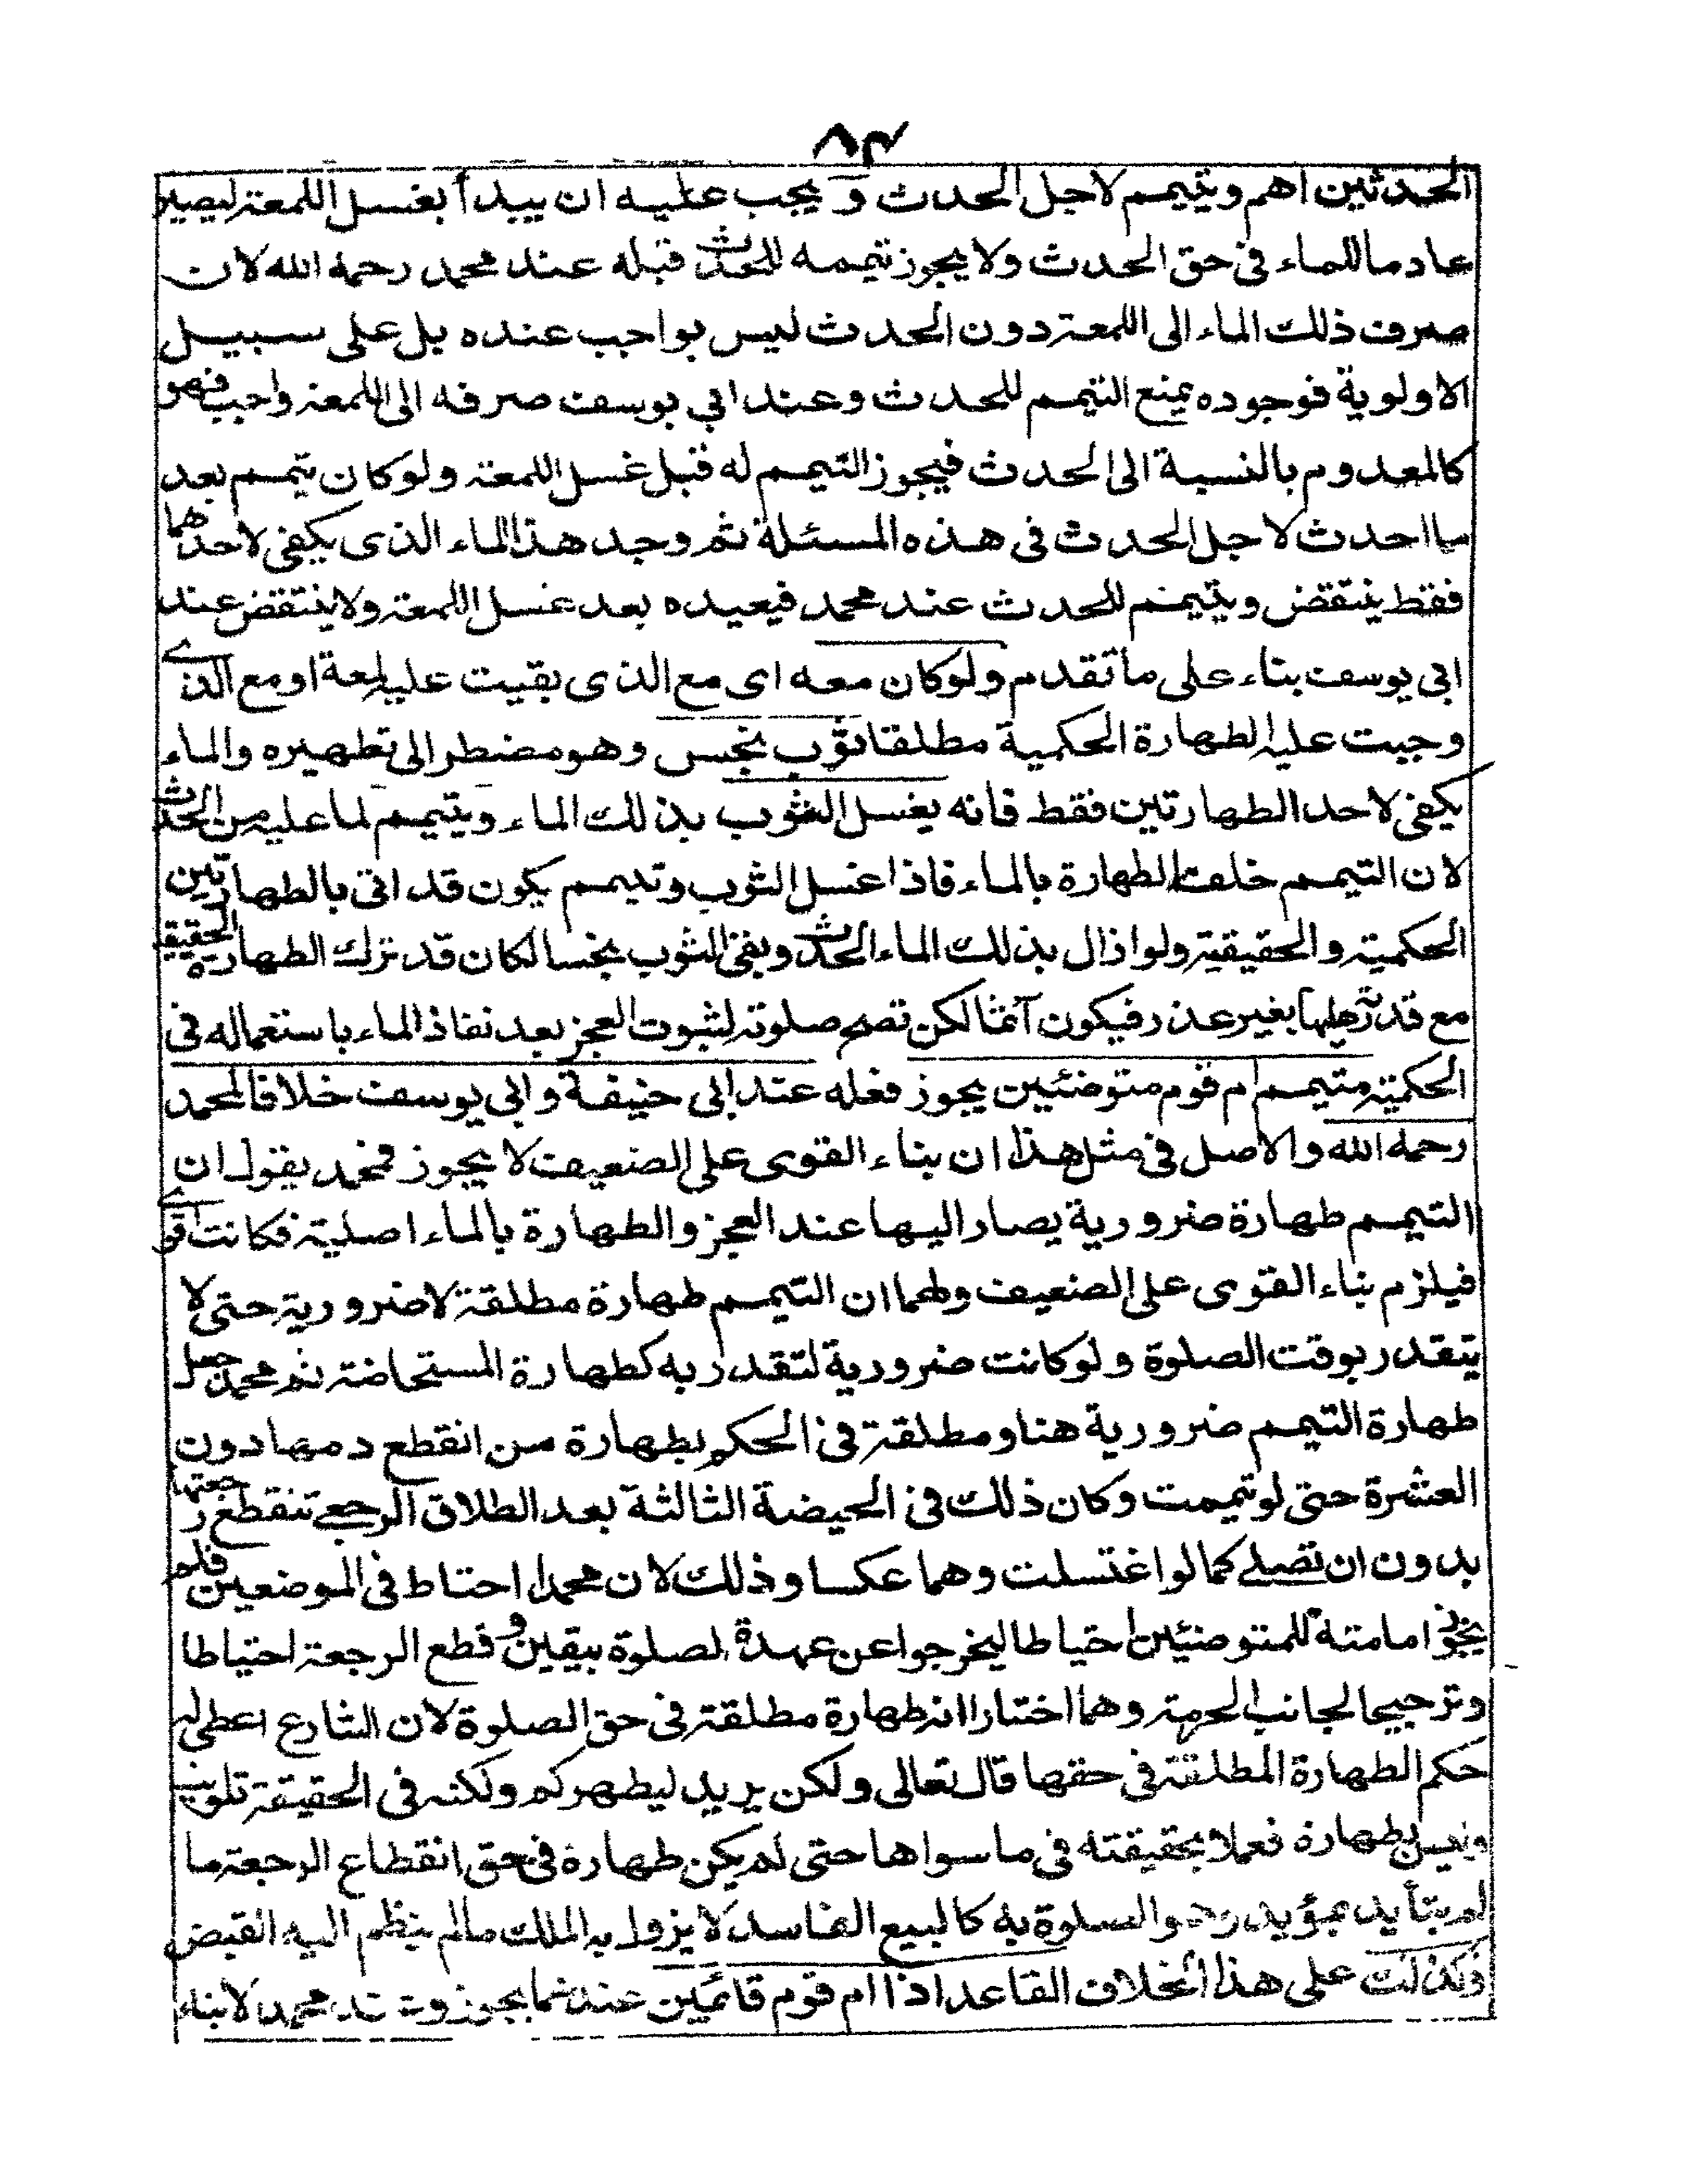 ٨٣
الحدثين اهم ويتيمم لاجل الحدث و يجب عليه ان يبدأ بغسل اللمعة ليصير
عادما للماء فى حق الحدث ولا يجوز تيممه للحدث قبله عند محمد رحمه الله لان
صرف ذلك الماء الى اللمعة دون الحدث ليس بواجب عنده بل على سبيل
الاولوية فوجوده يمنع التيمم للحدث وعند ابي يوسف صرفه الى اللمعة واجب فهو
كالمعدوم بالنسبة الى الحدث فيجوز التيمم له قبل غسل اللمعة ولو كان تيمم بعد
ما احدث لاجل الحدث فى هذه المسئلة ثم وجد هذا الماء الذى يكفى لاحدهما
فقط ينتقض ويتيمم للحدث عند محمد فيعيده بعد غسل اللمعة ولا ينتقض عند
ابى يوسف بناء على ما تقدم ولو كان معه اى مع الذى بقيت عليه لمعة او مع الذى
وجبت عليه الطهارة الحكمية مطلقا ثوب نجس وهو مضطر الى تطهيره والماء
يكفى لاحد الطهارتين فقط فانه يغسل الثوب بذلك الماء ويتيمم لما عليه من الحدث
لان التيمم خلف الطهارة بالماء فاذا غسل الثوب وتيمم يكون قد اتى بالطهارتين
الحكمية والحقيقية ولو ازال بذلك الماء الحدث وبقى الثوب نجسا لكان قد ترك الطهارة الحقيقية
مع قدرته عليها بغير عذر فيكون آثما لكن تصح صلوته لثبوت العجز بعد نفاذ الماء باستعماله فى
الحكمية متيمم ام قوم متوضئين يجوز فعله عند ابى حنيفة وابى يوسف خلافا لمحمد
رحمه الله والاصل فى مثل هذا ان بناء القوى على الضعيف لا يجوز فمحمد يقول ان
التيمم طهارة ضرورية يصار اليها عند العجز والطهارة بالماء اصلية فكانت اقوى
فيلزم بناء القوى على الضعيف ولهما ان التيمم طهارة مطلقة لا ضرورية حتى لا
يتقدر بوقت الصلوة ولو كانت ضرورية لتقدر به كطهارة المستحاضة ثم محمد جعل
طهارة التيمم ضرورية هنا ومطلقة فى الحكم بطهارة من انقطع دمها دون
العشرة حتى لو تيممت وكان ذلك فى الحيضة الثالثة بعد الطلاق الرجعى تنقطع رجعتها
بدون ان تصلى كما لو اغتسلت وهما عكسا وذلك لان محمدا احتاط فى الموضعين فلم
يجوز امامته للمتوضئين احتياطا ليخرجوا عن عهدة الصلوة بيقين وقطع الرجعة احتياطا
وترجيحا لجانب الحرمة وهما اختارا انه طهارة مطلقة فى حق الصلوة لان الشارع اعطى له
حكم الطهارة المطلقة فى حقها قال تعالى ولكن يريد ليطهركم ولكنه فى الحقيقة تلويث
وليس بطهارة فعملا بحقيقته فى ما سواها حتى لم يكن طهارة فى حق انقطاع الرجعة ما
لم يتأيد بمؤيد وهو الصلوة به كالبيع الفاسد لا يزول به الملك مالم ينظم اليه القبض
وكذلك على هذا الخلاف القاعد اذا ام قوم قائمين عندهما يجوز وعند محمد لا بناء